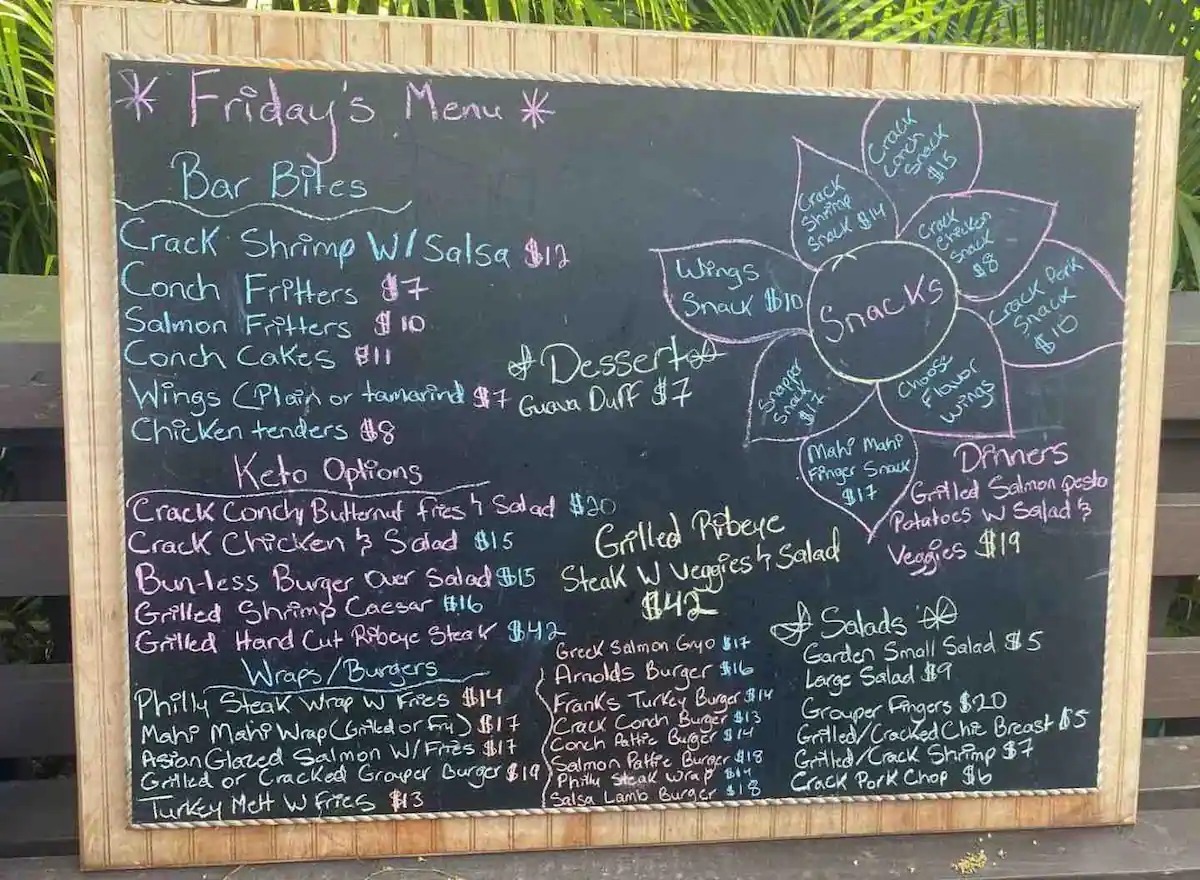 * Friday's Menu *
Bar Bites
Crack Shrimp W/Salsa $12
Conch Fritters $7
Salmon Fritters $10
Conch Cakes $11
Wings (Plain or tamarind $7
Chicken tenders $8
Keto Options
Crack Conch/Butternut fries & Salad $20
Crack Chicken & Salad $15
Bun-less Burger Over Salad $15
Grilled Shrimp Caesar $16
Grilled Hand Cut Ribeye Steak $42
Wraps/Burgers
Philly Steak Wrap W Fries $14
Mahi Mahi Wrap (Grilled or Fry) $17
Asian Glazed Salmon W/Fries $17
Grilled or Cracked Grouper Burger $19
Turkey Melt W Fries $13
Dessert
Guava Duff $7
Grilled Ribeye
Steak W Veggies & Salad
$42
Greek Salmon Gryo $17
Arnolds Burger $16
Franks Turkey Burger $14
Crack Conch Burger $13
Conch Pattie Burger $14
Salmon Pattie Burger $18
Philly Steak Wrap $14
Salsa Lamb Burger $18
Snacks
Wings
Snack $10
Crack
Shrimp
Snack $14
Crack
Conch
Snack
$15
Crack
Chicken
Snack
$8
Crack Pork
Snack
$10
Choose
Flavor
Wings
Mahi Mahi
Finger Snack
$17
Snapper
Snack
$17
Dinners
Grilled Salmon pesto
Potatoes W Salad &
Veggies $19
Salads
Garden Small Salad $5
Large Salad $9
Grouper Fingers $20
Grilled/Cracked Chic Breast $5
Grilled/Crack Shrimp $7
Crack Pork Chop $6